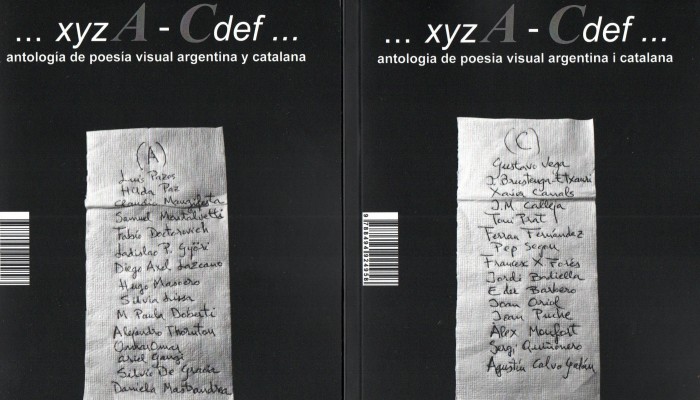 ... xyz A - C def ...
antología de poesía visual argentina y catalana
(A)
Luis Pazos
Hilda Paz
Claudio Mangifesta
Samuel Montalvetti
Fabio Doctorovich
Ladislao P. Györi
Diego Axel Lazcano
Hugo Masoero
Silvia Lissa
M Paula Doberti
Alejandro Thornton
OmarOmar
Ariel Gangi
Silvio De Gracia
Daniela Mastrandrea
... xyz A - C def ...
antologia de poesia visual argentina i catalana
(C)
Gustavo Vega
J. Bru
Xavier Canals
J.M. Calleja
Toni Prat
Ferran Fernández
Pep Segon
Francesc X Forés
Jordi
Edu Barbero
Joan Oriol
Joan Puche
Àlex Monfort
Sergi Quiñonero
Agustín Calvo Galán